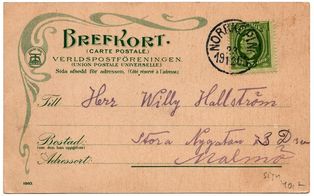 BREFKORT.
(CARTE POSTALE)
VERLDSPOSTFÖRENINGEN.
(UNION POSTALE UNIVERSELLE)
Sida afsedd för adressen. (Côté réservé à l'adresse)
NORRKÖPING
23
19
Till Herr Willy Hallström
Bostad: Stora Nygatan 73 D
(om den kan uppgifvas)
Adressort: Malmö